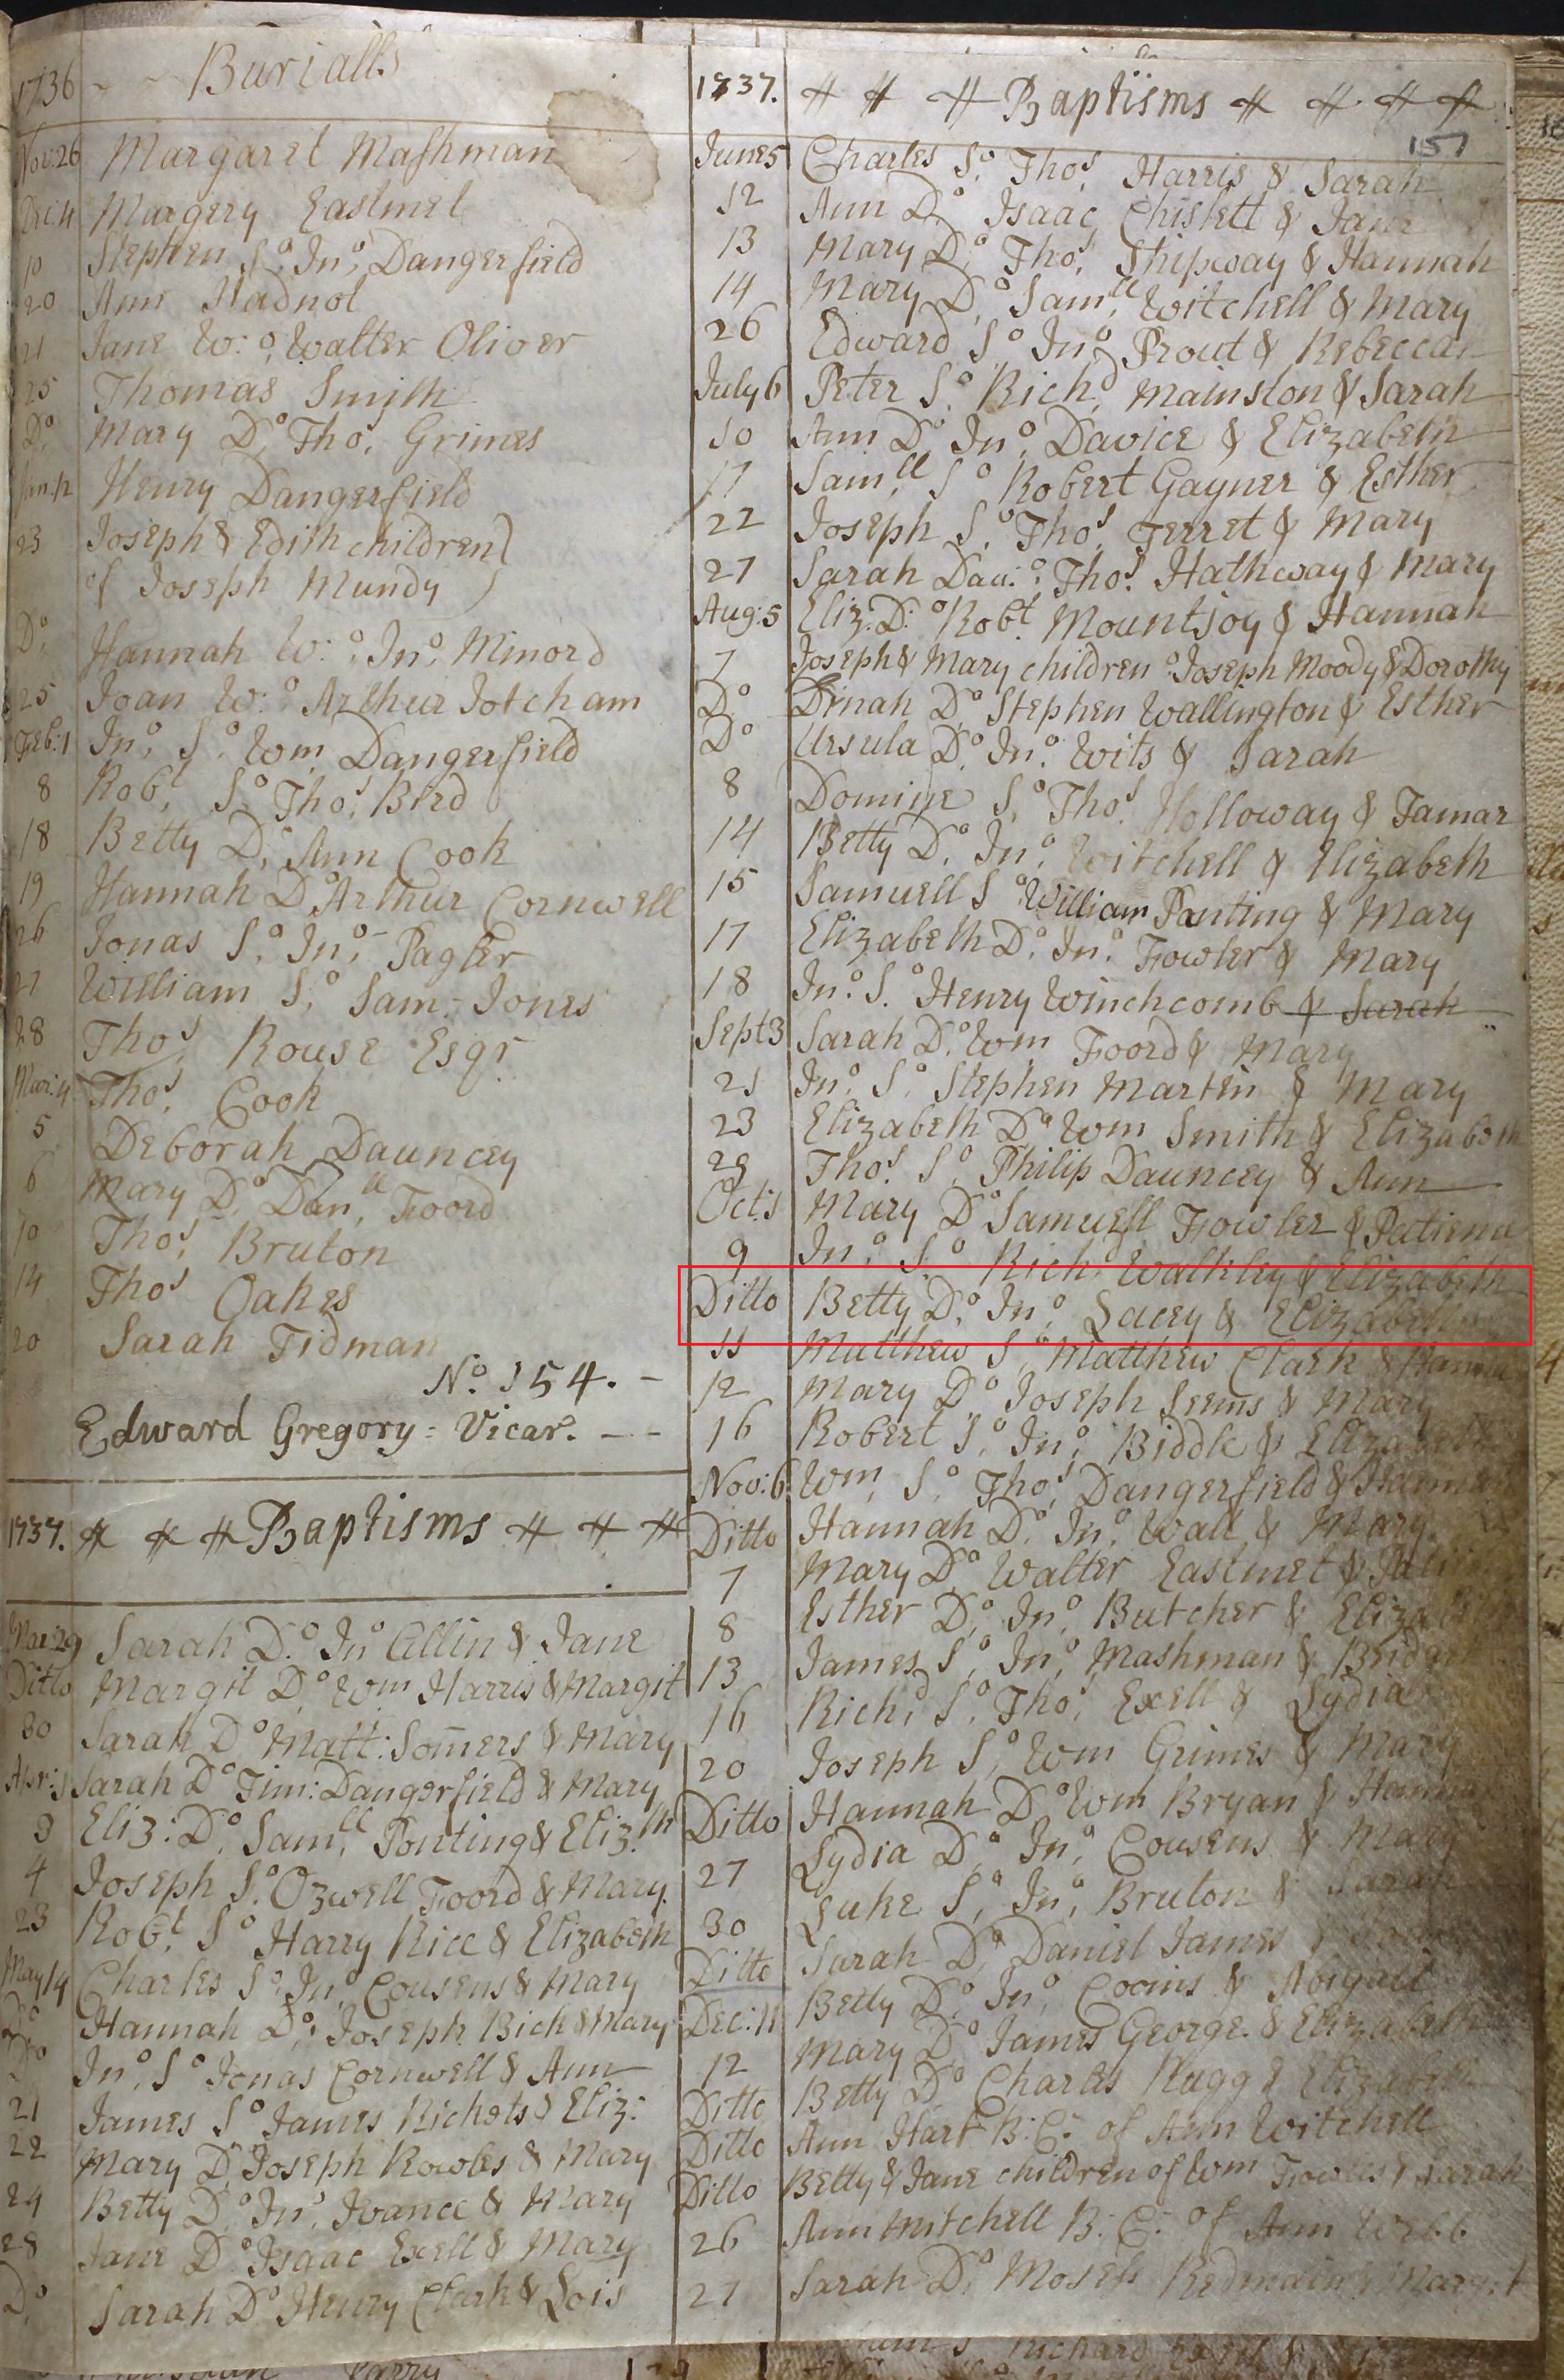 1736 - - Burialls
Nov:26 Margaret Mashman
Dec:4 Margery Eastmet
10 Stephen So. Jno. Dangerfield
20 Ann Hadnot
21 Jane W: o. Walter Oliver
25 Thomas Smith
Do. Mary Do. Tho. Grimes
Jan:12 Henry Dangerfield
23 Joseph & Edith children
of Joseph Mundy
Do. Hannah W: o. Jno. Minord
25 Joan W: o Arthur Jotcham
Feb:1 Jno. So. Wm. Dangerfield
8 Robt. So. Thos. Bird
18 Betty D. Ann Cook
19 Hannah Do. Arthur Cornwell
26 Jonas So. Jno. Pagler
27 William So. Sam: Jones
28 Thos. Rouse Esqr
Mar:4 Thos. Cook
5 Deborah Dauncey
6 Mary Do. Danll. Foord
10 Thos. Bruton
14 Thos Oakes
20 Sarah Tidman
No. 154. -
Edward Gregory = Vicar. - -
1737. # # # Baptisms # # #
Mar:29 Sarah Do. Jno Allin & Jane
Ditto Margit Do. Wm Harris & Margit
30 Sarah Do Matt: Somers & Mary
Apr:1 Sarah Do Tim: Dangerfield & Mary
3 Eliz: Do. Samll. Ponting & Elizth.
4 Joseph So. Ozwell Foord & Mary.
23 Robt. So Harry Rice & Elizabeth
May 14 Charles So. Jno. Cousens & Mary
Do Hannah Do. Joseph Rich & Mary
Do Jno. So Jonas Cornwell & Ann
21 James So James Richets & Eliz:
22 Mary Do. Joseph Rowles & Mary
24 Betty Do. Jno. Ivance & Mary
28 Jane Do Isaac Exell & Mary
Do. Sarah Do Henry Clark & Lois
1737. # # # Baptisms # # # #
157
June 5 Charles So. Thos. Harris & Sarah
12 Ann Do. Isaac Chislett & Jane
13 Mary Do. Thos. Shipway & Hannah
14 Mary Do. Samll. Witchell & Mary
26 Edward So. Jno. Prout & Rebecca
July 6 Peter So. Richd. Mainston & Sarah
10 Ann Do. Jno. Davice & Elizabeth
17 Samll. So Robert Gayner & Esther
22 Joseph So. Thos. Ferret & Mary
27 Sarah Dau: o. Thos. Hathway & Mary
Aug:5 Eliz: D: o Robt. Mountjoy & Hannah
7 Joseph & Mary children o. Joseph Moody & Dorothy
Do. Dinah Do. Stephen Wallington & Esther
Do Ursula Do. Jno. Wits & Sarah
8 So. Thos. Holloway & Tamar
14 Betty Do. Jno. Witchell & Elizabeth
15 Samuell So William Panting & Mary
17 Elizabeth Do. Jno. Fowler & Mary
18 Jno. So. Henry Winchcomb & Sarah
Sept 3 Sarah Do. Wm Foord & Mary
21 Jno. So. Stephen Marten & Mary
23 Elizabeth Do Wm Smith & Elizabeth
29 Thos. So. Philip Dauncey & Ann
Oct:1 Mary Do Samuell Fowler & Patience
9 Jno. So. Richd. Walkley & Elizabeth
Ditto Betty Do. Jno. Lacey & Elizabeth
11 Matthew So. Matthew Clark &
12 Mary Do. Joseph Seems & Mary
16 Robert So. Jno. Biddle & Elizabeth
Nov:6 Wm. So. Thos. Dangerfield & Hannah
Ditto Hannah Do. Jno. Wall & Mary
7 Mary Do. Walter Eastmet &
8 Esther Do. Jno. Butcher &
13 James So. Jno. Mashman &
16 Richd. So. Thos. Exell & Lydia
20 Joseph So. Wm Grimes & Mary
Ditto Hannah Do. Wm Bryan &
27 Lydia Do. Jno. Cousens & Mary
30 Luke So. Jno. Bruton & Sarah
Ditto Sarah Do. Daniel James
Dec:11 Betty Do. Jno. Cooms & Abigail
12 Mary Do. James George & Elizabeth
Ditto Betty Do Charles Rugg & Elizabeth
Ditto Ann Hart B: C: of Ann Witchell
Ditto Betty & Jane children of Wm Fowles & Sarah
26 Ann Mitchell B: C: of Ann Webb
27 Sarah Do. Moses Redmain &